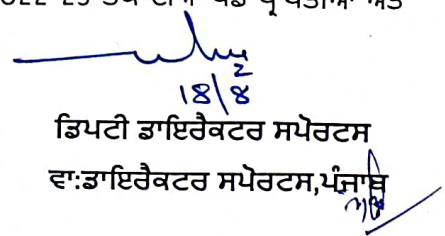 18/8
ਡਿਪਟੀ ਡਾਇਰੈਕਟਰ ਸਪੋਰਟਸ
ਵਾ:ਡਾਇਰੈਕਟਰ ਸਪੋਰਟਸ,ਪੰਜਾਬ